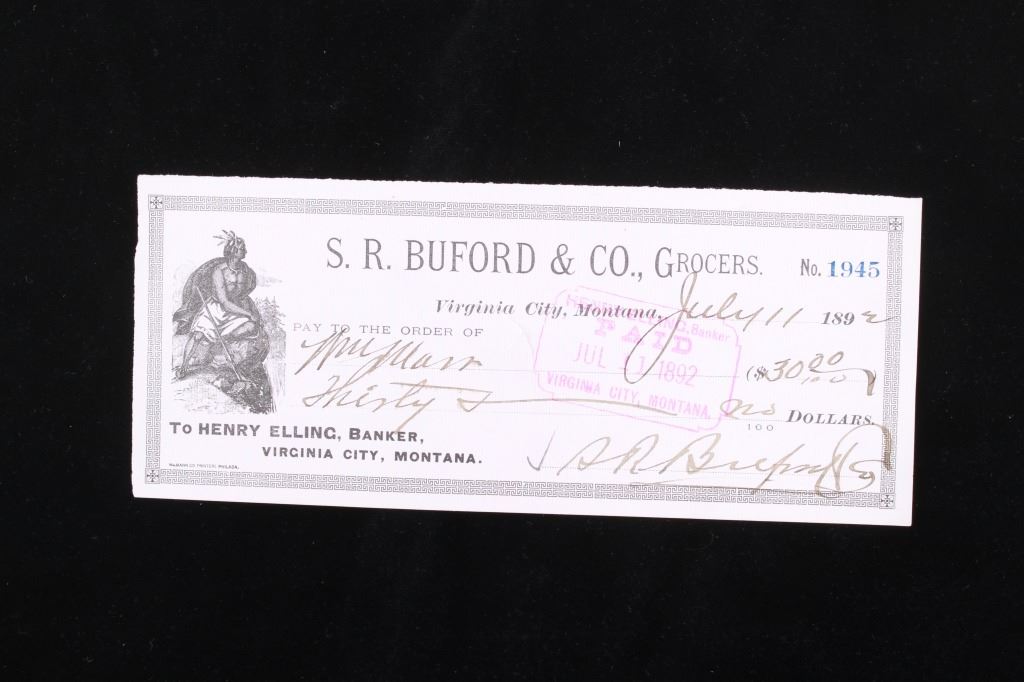 S. R. BUFORD & CO., GROCERS.
No. 1945
Virginia City, Montana, July 11 1892
PAY TO THE ORDER OF
Wm Marr
($30 00/100)
Thirty & no/100 DOLLARS.
HENRY ELLING, Banker
PAID
JUL 11 1892
VIRGINIA CITY, MONTANA.
TO HENRY ELLING, BANKER,
VIRGINIA CITY, MONTANA.
S R Buford & Co